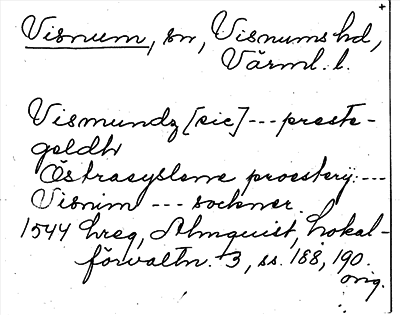 Visnum, sn, Visnums hd,
Värml. l.
Vismundz [sic] --- preste-
geldh
Östrasyslene proestery: ---
Visnim --- sockner
1544 hreg, Almquist, Lokal-
förvaltn. 3, ss. 188, 190.
orig.